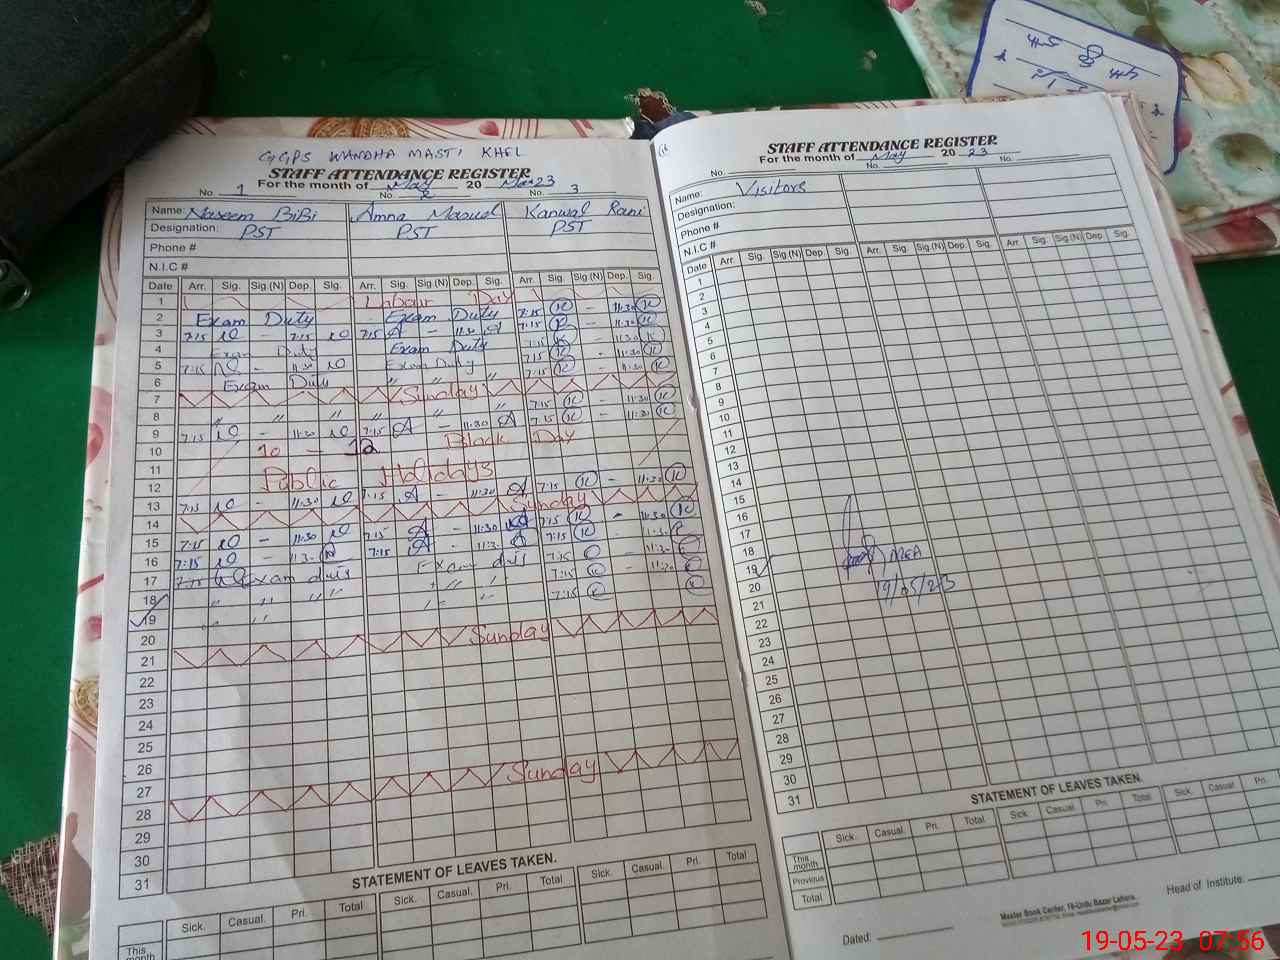 GGPS WANDHA MASTI KHEL
STAFF ATTENDANCE REGISTER
For the month of May 20 May 23
No. 1 No. 2 No. 3
Name: Naseem BiBi Amna Maqsud Kanwal Rani
Designation: PST PST PST
Phone #
N.I.C #
Date Arr. Sig. Sig.(N) Dep. Sig. Arr. Sig. Sig.(N) Dep. Sig. Arr. Sig. Sig.(N) Dep. Sig.
1 Labour Day
2 Exam Duty Exam Duty 7:15 - 11:30
3 7:15 - 7:15 7:15 A - 11:30 A 7:15 - 11:30
4 Exam Duty Exam Duty 7:15 - 11:30
5 7:15 - 11:30 Exam Duty 7:15 - 11:30
6 Exam Duty " " " 7:15 - 11:30
7 Sunday
8 " " " " " " 7:15 - 11:30
9 7:15 - 11:30 7:15 A - 11:30 A 7:15 - 11:30
10 10 - 12 Black Day
11 Public Holidays
12
13 7:15 - 11:30 7:15 A - 11:30 A 7:15 - 11:30
14 Sunday
15 7:15 - 11:30 7:15 A - 11:30 7:15 - 11:30
16 7:15 - 11:30 7:15 A - 11:30 A 7:15 - 11:30
17 7:15 Exam duty Exam duty 7:15 - 11:30
18 " " " " " " 7:15 - 11:30
19 " " " " 7:15
20
21 Sunday
22
23
24
25
26
27
28 Sunday
29
30
31
STATEMENT OF LEAVES TAKEN.
Sick. Casual. Pri. Total Sick. Casual. Pri. Total Sick. Casual. Pri. Total
This month
STAFF ATTENDANCE REGISTER
For the month of May 20 23
No. No. No.
Name: Visitors
Designation:
Phone #
N.I.C #
Date Arr. Sig. Sig.(N) Dep. Sig. Arr. Sig. Sig.(N) Dep. Sig. Arr. Sig. Sig.(N) Dep. Sig.
1
2
3
4
5
6
7
8
9
10
11
12
13
14
15
16
17
18
19 MEA
20 19/05/23
21
22
23
24
25
26
27
28
29
30
31
STATEMENT OF LEAVES TAKEN.
Sick. Casual. Pri. Total Sick. Casual. Pri. Total Sick. Casual. Pri.
This month
Previous
Total
Master Book Center, 19-Urdu Bazar Lahore.
Dated: Head of Institute:
5th
4th
19-05-23 07:56